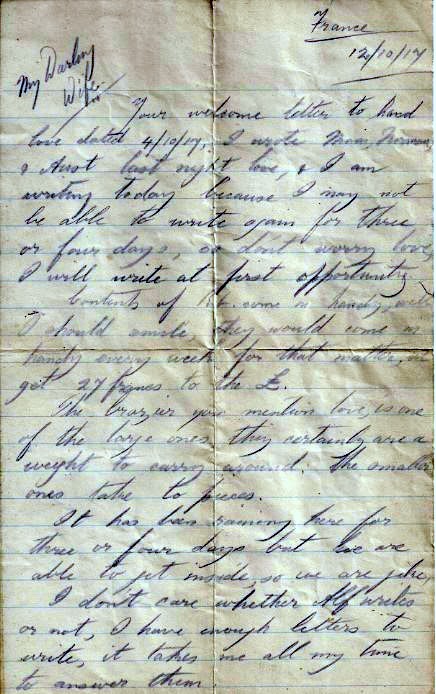 France
12/10/17
My Darling
Wife
Your welcome letter to hand
love dated 4/10/17, I wrote Mum, Norman,
& Aust last night love, & I am
writing today because I may not
be able to write again for three
or four days, so don't worry love,
I will write at first opportunity.
Contents of come in handy, well
I should smile, they would come in
handy every week for that matter, we
get 27 francs to the £.
The brazier you mention love, is one
of the large ones, they certainly are a
weight to carry around. The smaller
ones take to pieces.
It has been raining here for
three or four days but we are
able to get inside, so we are jake,
I don't care whether Alf writes
or not, I have enough letters to
write, it takes me all my time
to answer them